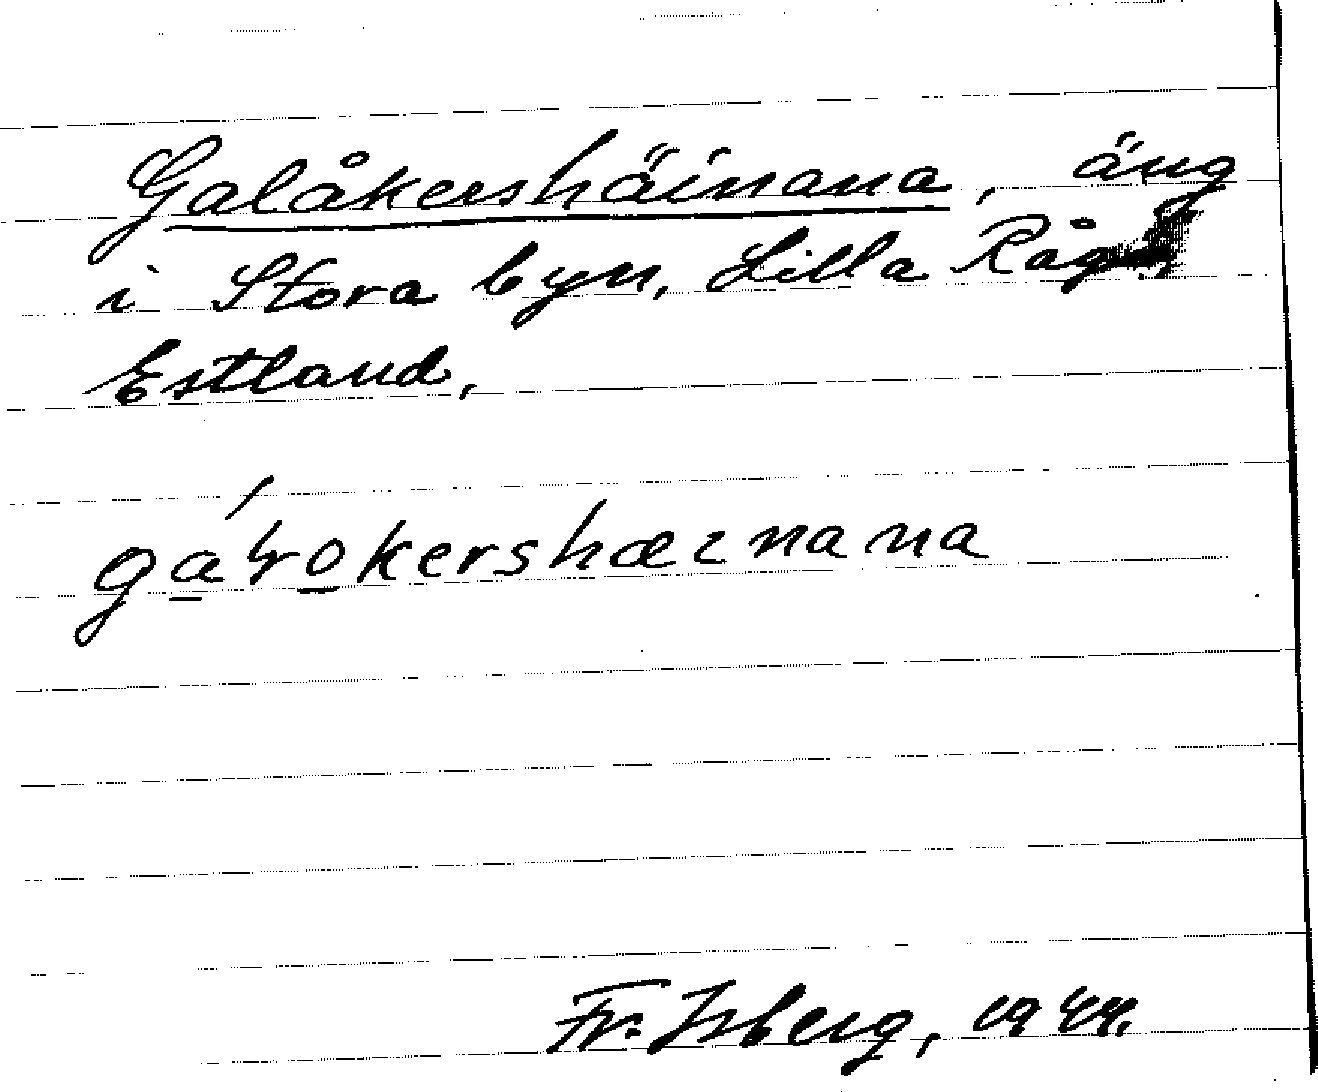 Galåkershäinana, äng
i Stora byn, Lilla Rågö,
Estland.
gáłokershæɩnana
Fr. Isberg, 1944.